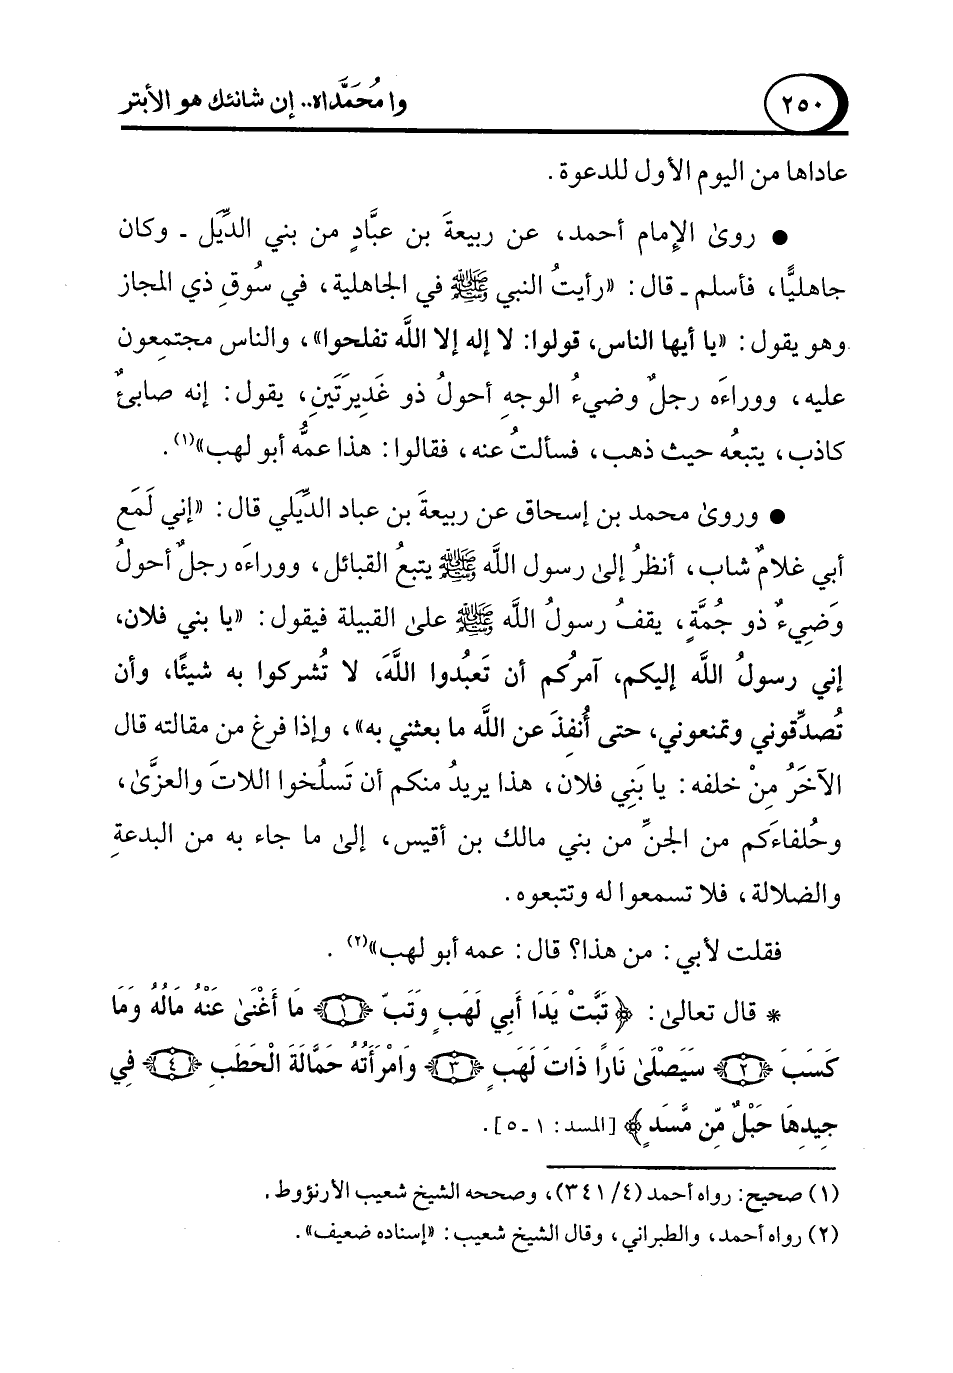 ٢٥٠
وا مُحَمَّداه.. إن شانئك هو الأبتر
عاداها من اليوم الأول للدعوة.
● روىٰ الإمام أحمد، عن ربيعةَ بن عبَّادٍ من بني الدِّيَل ـ وكان
جاهليًّا، فأسلم ـ قال: «رأيتُ النبي ﷺ في الجاهلية، في سُوقِ ذي المجاز
وهو يقول: «يا أيها الناس، قولوا: لا إله إلا اللَّه تفلحوا»، والناس مجتمِعون
عليه، ووراءَه رجلٌ وضيءُ الوجهِ أحولُ ذو غَدِيرَتَينِ، يقول: إنه صابئٌ
كاذب، يتبعُه حيث ذهب، فسألتُ عنه، فقالوا: هذا عمُّه أبو لهب»(١).
● وروىٰ محمد بن إسحاق عن ربيعةَ بن عباد الدِّيَلي قال: «إني لَمَع
أبي غلامٌ شاب، أنظرُ إلىٰ رسول اللَّه ﷺ يتبعُ القبائل، ووراءَه رجلٌ أحولُ
وَضِيءٌ ذو جُمَّةٍ، يقفُ رسولُ اللَّه ﷺ علىٰ القبيلة فيقول: «يا بني فلان،
إني رسولُ اللَّه إليكم، آمرُكم أن تَعبُدوا اللَّهَ، لا تُشركوا به شيئًا، وأن
تُصدِّقوني وتمنعوني، حتى أُنفِذَ عن اللَّه ما بعثني به»، وإذا فرغ من مقالته قال
الآخَرُ مِنْ خلفه: يا بَنِي فلان، هذا يريدُ منكم أن تَسلُخوا اللاتَ والعزَّىٰ،
وحُلفاءَكم من الجنِّ من بني مالك بن أقيس، إلىٰ ما جاء به من البدعةِ
والضلالة، فلا تسمعوا له وتتبعوه.
فقلت لأبي: من هذا؟ قال: عمه أبو لهب»(٢).
* قال تعالىٰ: ﴿تَبَّتْ يَدَا أَبِي لَهَبٍ وَتَبَّ ﴿١﴾ مَا أَغْنَىٰ عَنْهُ مَالُهُ وَمَا
كَسَبَ ﴿٢﴾ سَيَصْلَىٰ نَارًا ذَاتَ لَهَبٍ ﴿٣﴾ وَامْرَأَتُهُ حَمَّالَةَ الْحَطَبِ ﴿٤﴾ فِي
جِيدِهَا حَبْلٌ مِّن مَّسَدٍ﴾ [المسد: ١ ـ ٥].
(١) صحيح: رواه أحمد (٤/ ٣٤١)، وصححه الشيخ شعيب الأرنؤوط.
(٢) رواه أحمد، والطبراني، وقال الشيخ شعيب: «إسناده ضعيف».